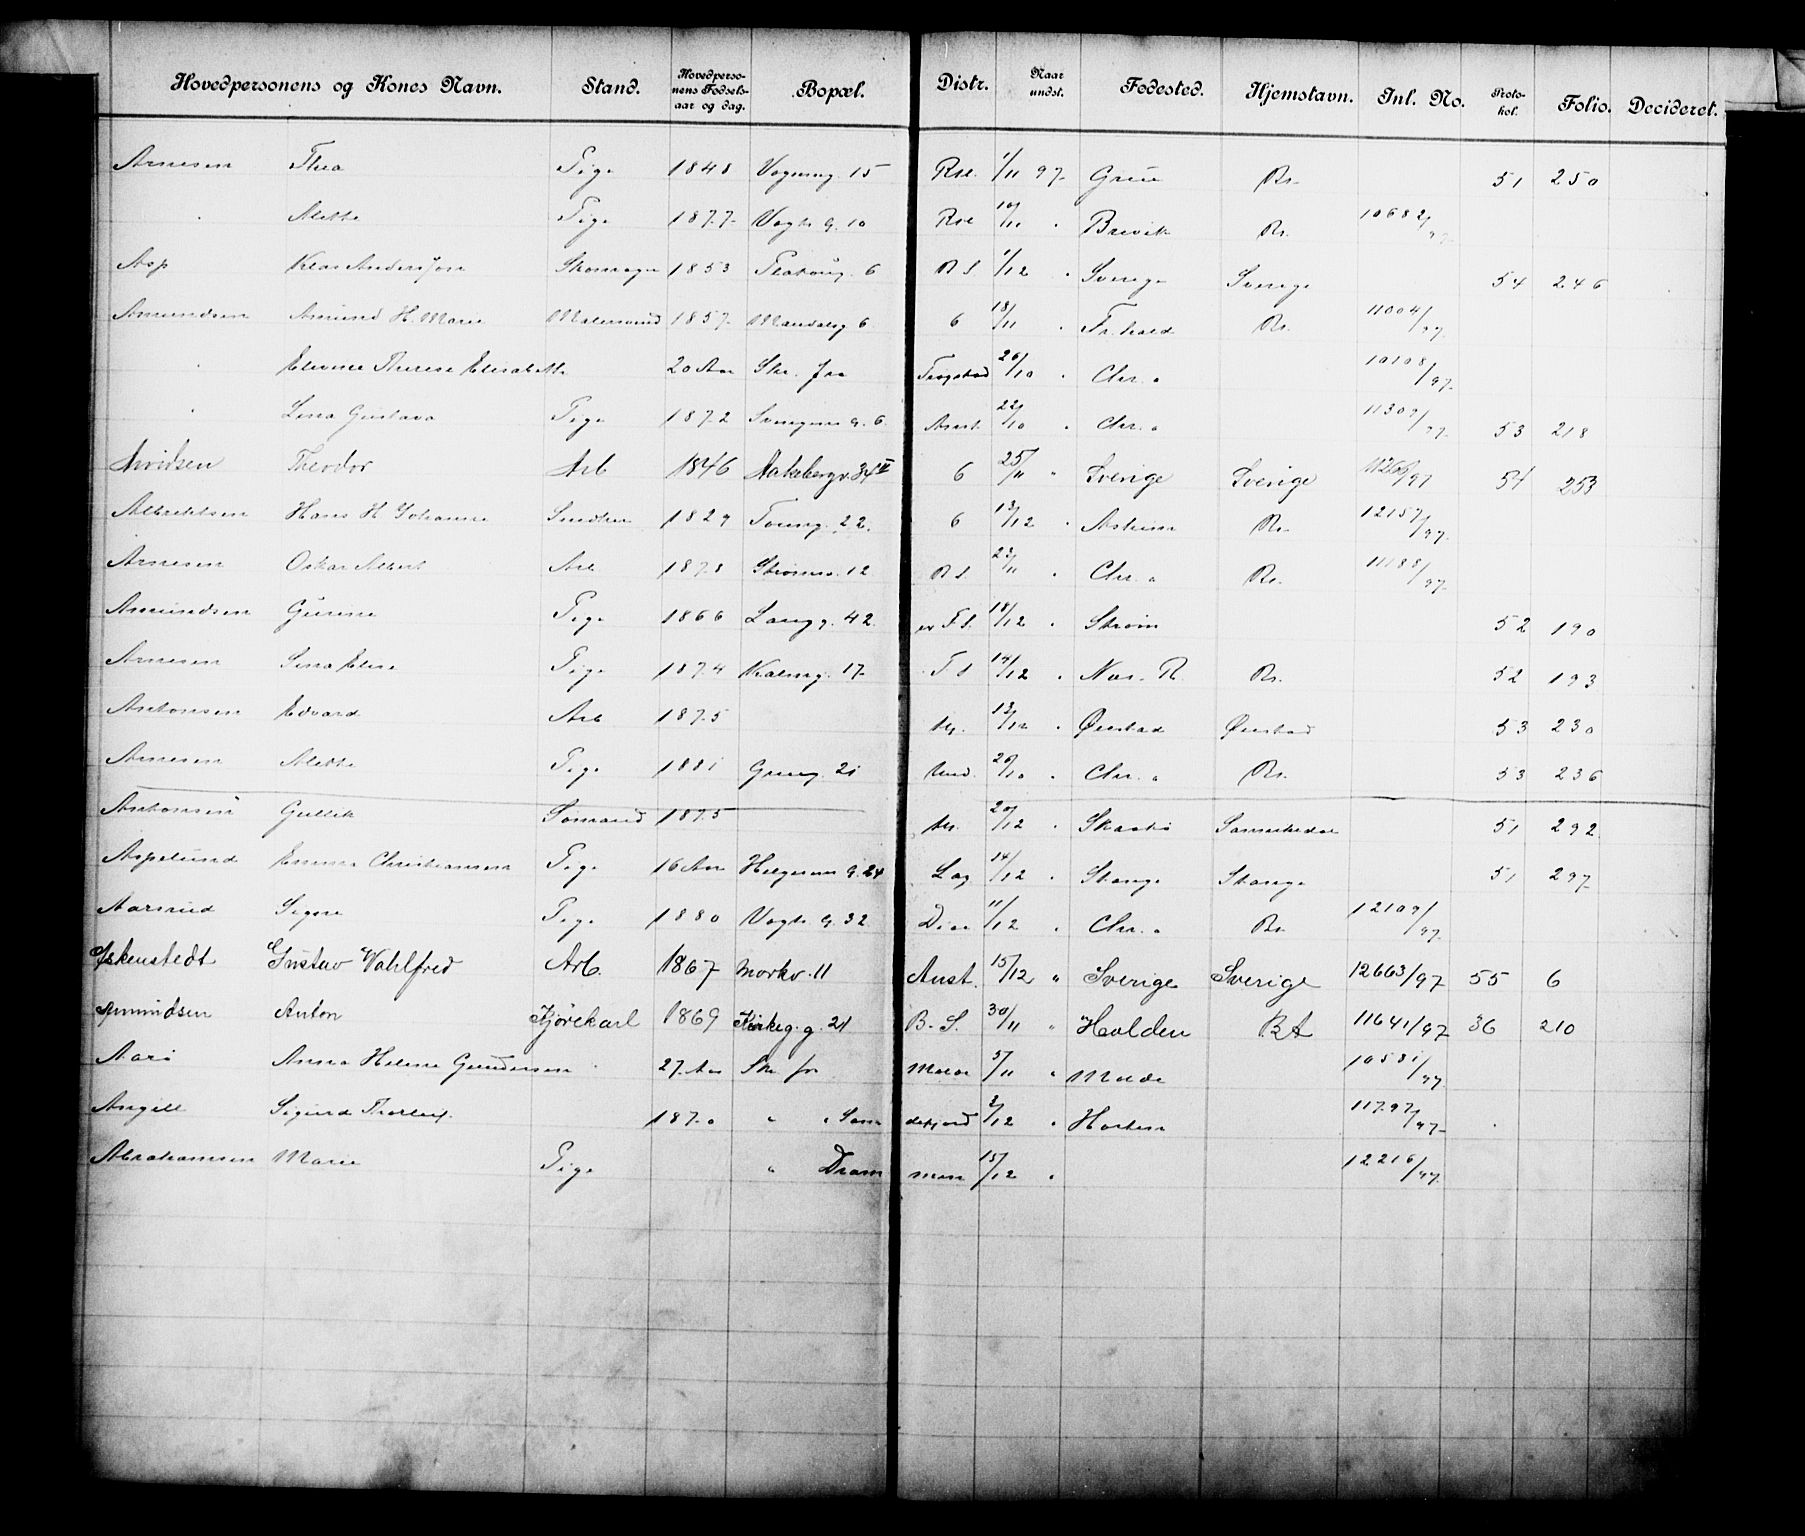 Hovedpersonens og Kones Navn. Stand. Hovedpersonens Fødselsaar og dag. Bopæl. Distr. Naar undst. Fødested. Hjemstavn. Jnl. No. Protokol. Folio. Decideret.
Arnesen Thea Pige 1848 Vognmg. 15 Rst. 1/11 97 Grue Kr. 51 250
" Alette Pige 1877 Vogts g. 10 Rst 10/11 " Brevik Kr. 10682/97
Asp Klas Andersson Skomager 1853 6 B S 1/12 " Sverige Sverige 54 246
Amundsen Amund H. Marie Malersvend 1857 Mandalsg 6 6 18/11 " Fr.hald Kr. 11004/97
" Elevine Therese Elisabeth 20 Aar Skr. fra Trøgstad 26/10 " Chr.a 10108/97
" Lina Gustava Pige 1872 g. 6 Amt. 22/10 " Chr.a 11309/97 53 218
Arvidsen Theodor Arb 1846 Aakebergv. 34 II 6 25/11 " Sverige Sverige 11266/97 54 253
Albrektsen Hans H. Johanne Snedker 1829 Toveng. 22 6 13/12 " Askim Kr. 12157/97
Arnesen Oskar Albert Arb 1878 Strømsv. 12 B S. 23/11 " Chr.a Kr. 11188/97
Amundsen Gunine Pige 1866 Langg. 42 F.S. 18/12 " Strøm 52 190
Arnesen Lina Elise Pige 1874 Kalmg. 17 F S 14/12 " Næs. R. Kr. 52 193
Antonsen Edvard Arb 1875 13/12 " Øiestad Øiestad 53 230
Arnesen Alette Pige 1881 Grueg. 21 Und. 20/10 " Chr.a Kr. 53 236
Antonsen Gullik Sømand 1875 20/12 " Skaatø Sannikedal 51 292
Aspelund Emma Christiansen Pige 16 Aar Helgesens g. 24 Lag 14/12 " Stange Stange 51 297
Aarsrud Signe Pige 1880 Vogts g. 32 11/12 " Chr.a Kr. 12109/97
Askenstedt Gustav Wahlfred Arb. 1867 Morkv. 11 Aust. 15/12 " Sverige Sverige 12663/97 55 6
Amundsen Anton Kjørekarl 1869 Kirkeg. g. 21 B. S. 30/11 " Halden KA 11641/97 36 210
Aarø Anna Helene Gundersen 27 Aar Skr fr Molde 5/11 " Molde 10581/97
Angell Sigurd Thorleif 1870 " " Sandefjord 2/12 " Horten 11797/97
Abrahamsen Marie Pige " Drammen 15/12 " 12216/97